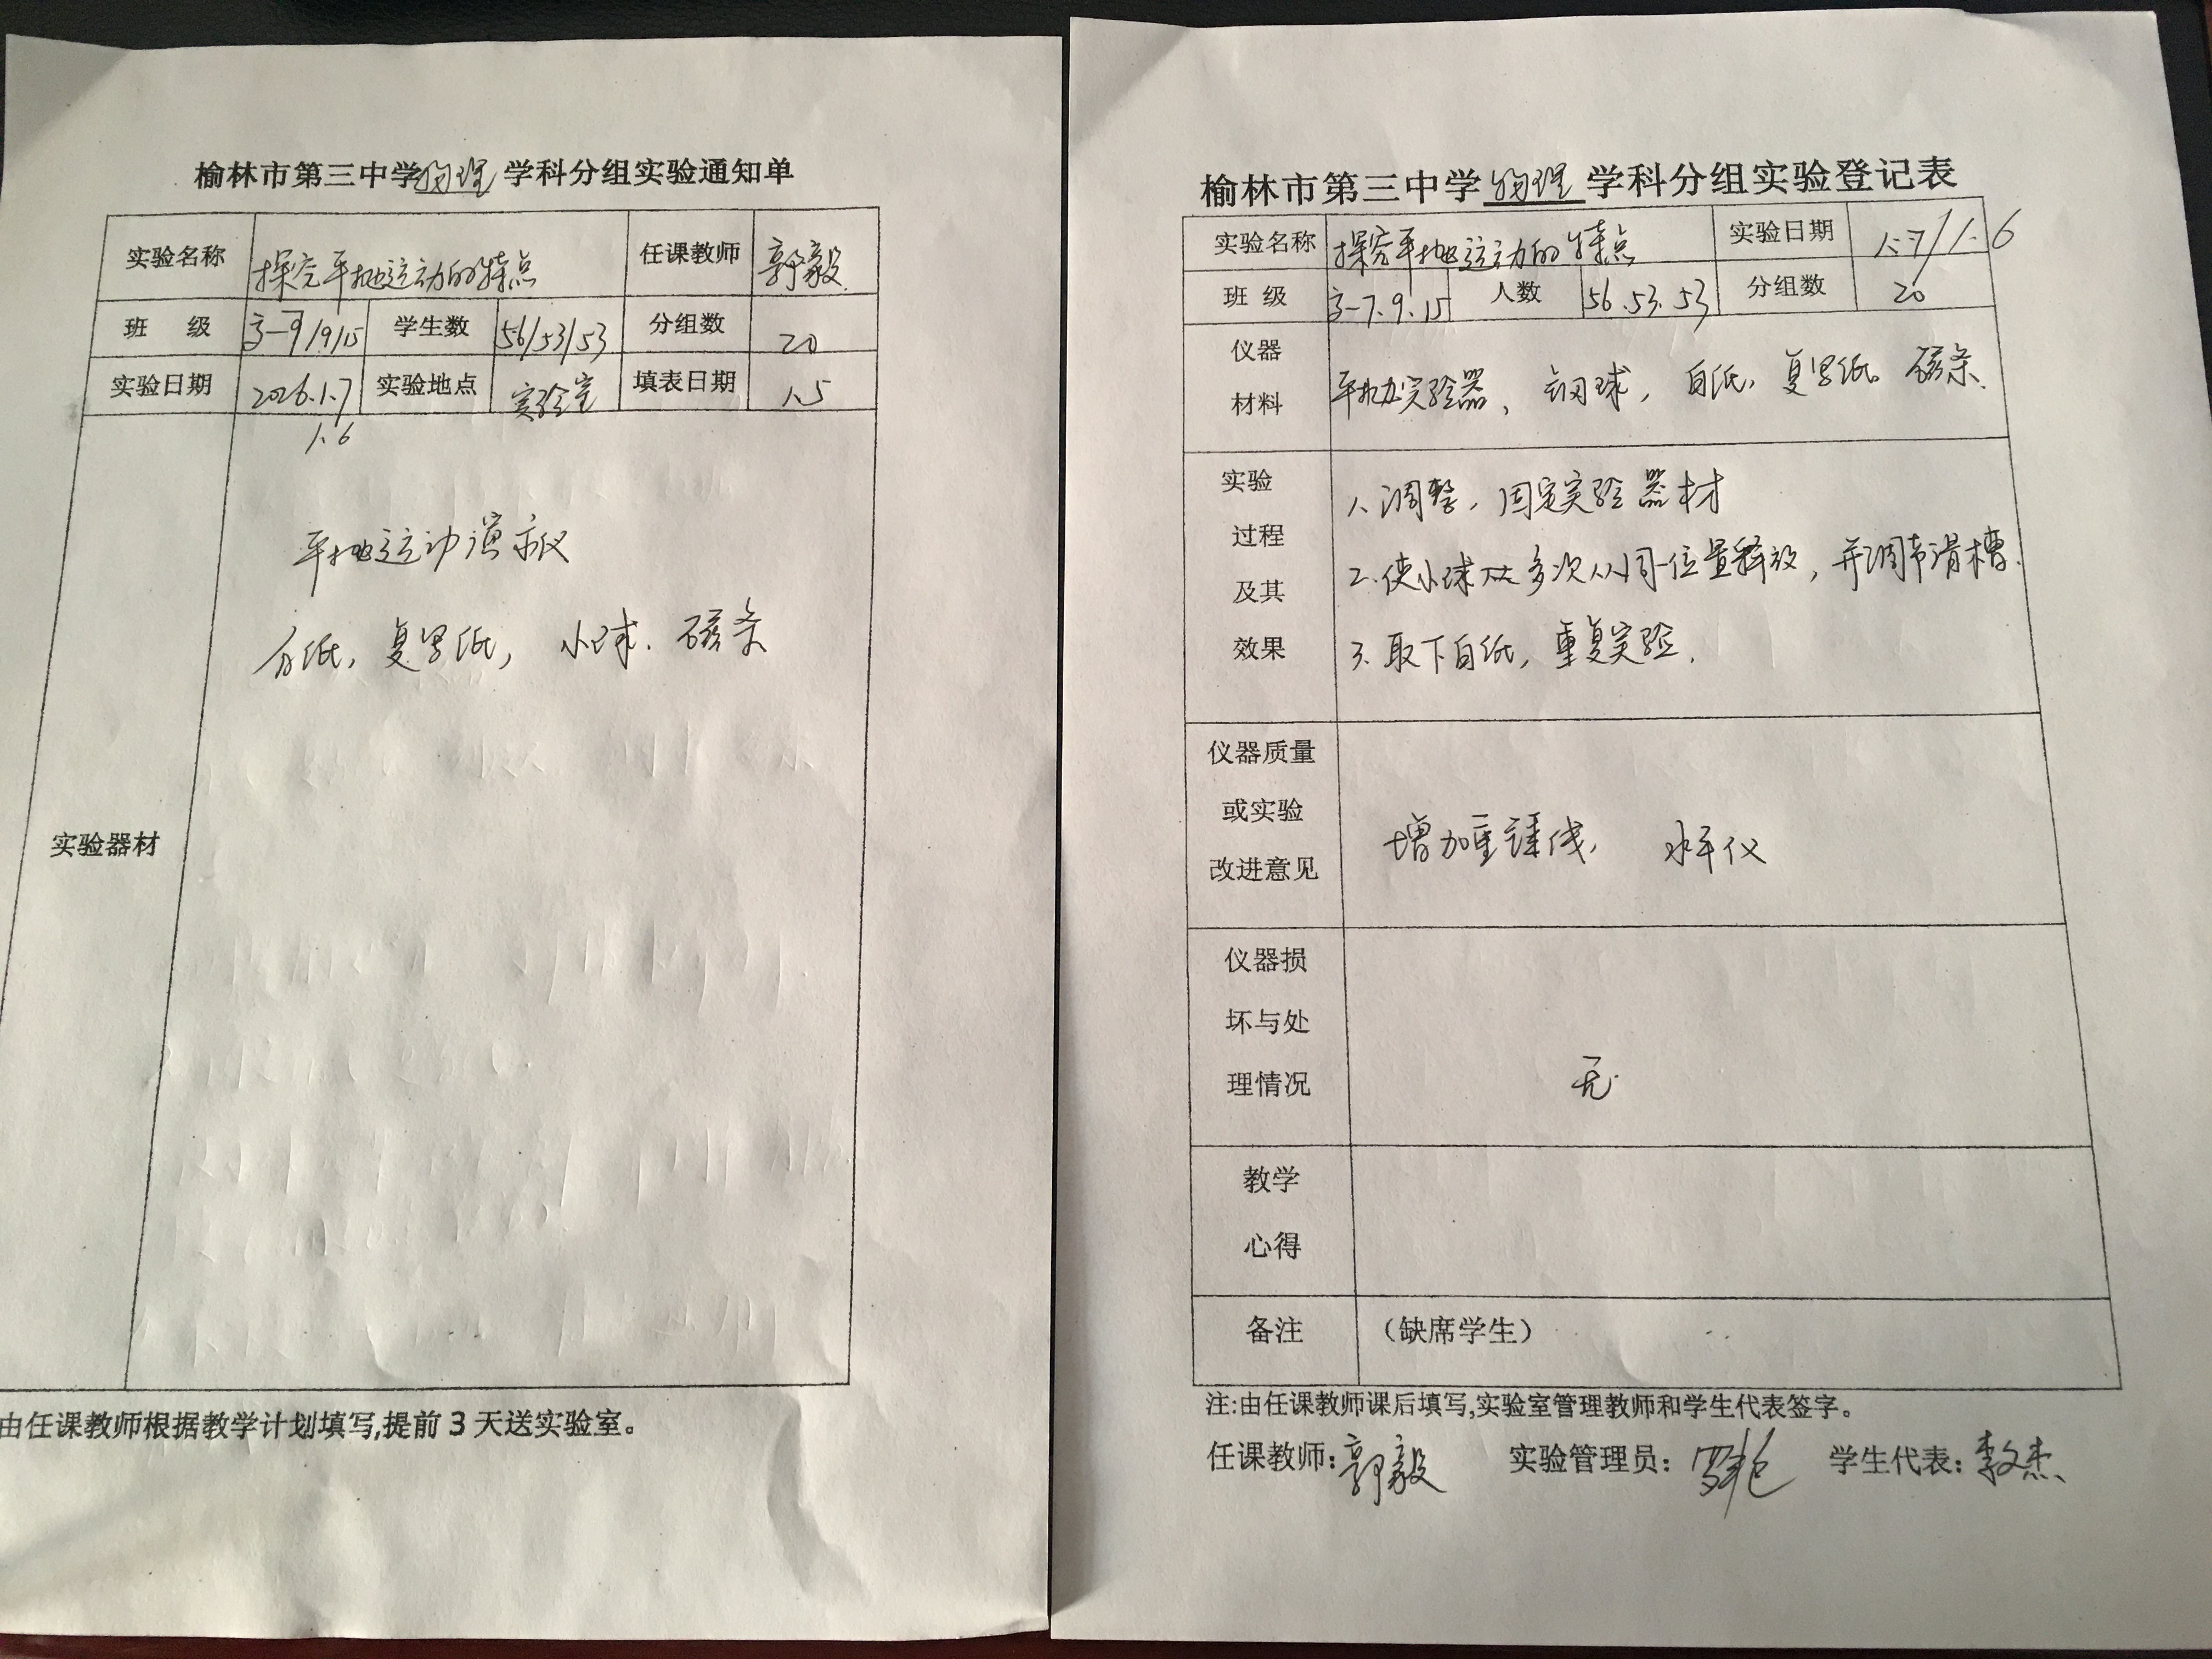 榆林市第三中学物理学科分组实验通知单
实验名称 探究平抛运动的特点 任课教师 郭毅
班 级 高一7/9/15 学生数 56/53/53 分组数 20
实验日期 2026.1.7 实验地点 实验室 填表日期 1.5
1.6
实验器材
平抛运动演示仪
白纸, 复写纸, 小球. 磁条
由任课教师根据教学计划填写,提前3天送实验室。
榆林市第三中学物理学科分组实验登记表
实验名称 探究平抛运动的特点 实验日期 1.7/1.6
班 级 高一7.9.15 人数 56.53.53 分组数 20
仪器
材料
平抛实验器, 钢球, 白纸, 复写纸。磁条.
实验
过程
及其
效果
1. 调整, 固定实验器材
2. 使小球多次从同一位置释放, 并调节滑槽.
3. 取下白纸, 重复实验.
仪器质量
或实验
改进意见
增加重锤线, 水平仪
仪器损
坏与处
理情况
无.
教学
心得
备注 (缺席学生)
注:由任课教师课后填写,实验室管理教师和学生代表签字。
任课教师: 郭毅 实验管理员: 学生代表: 李文杰